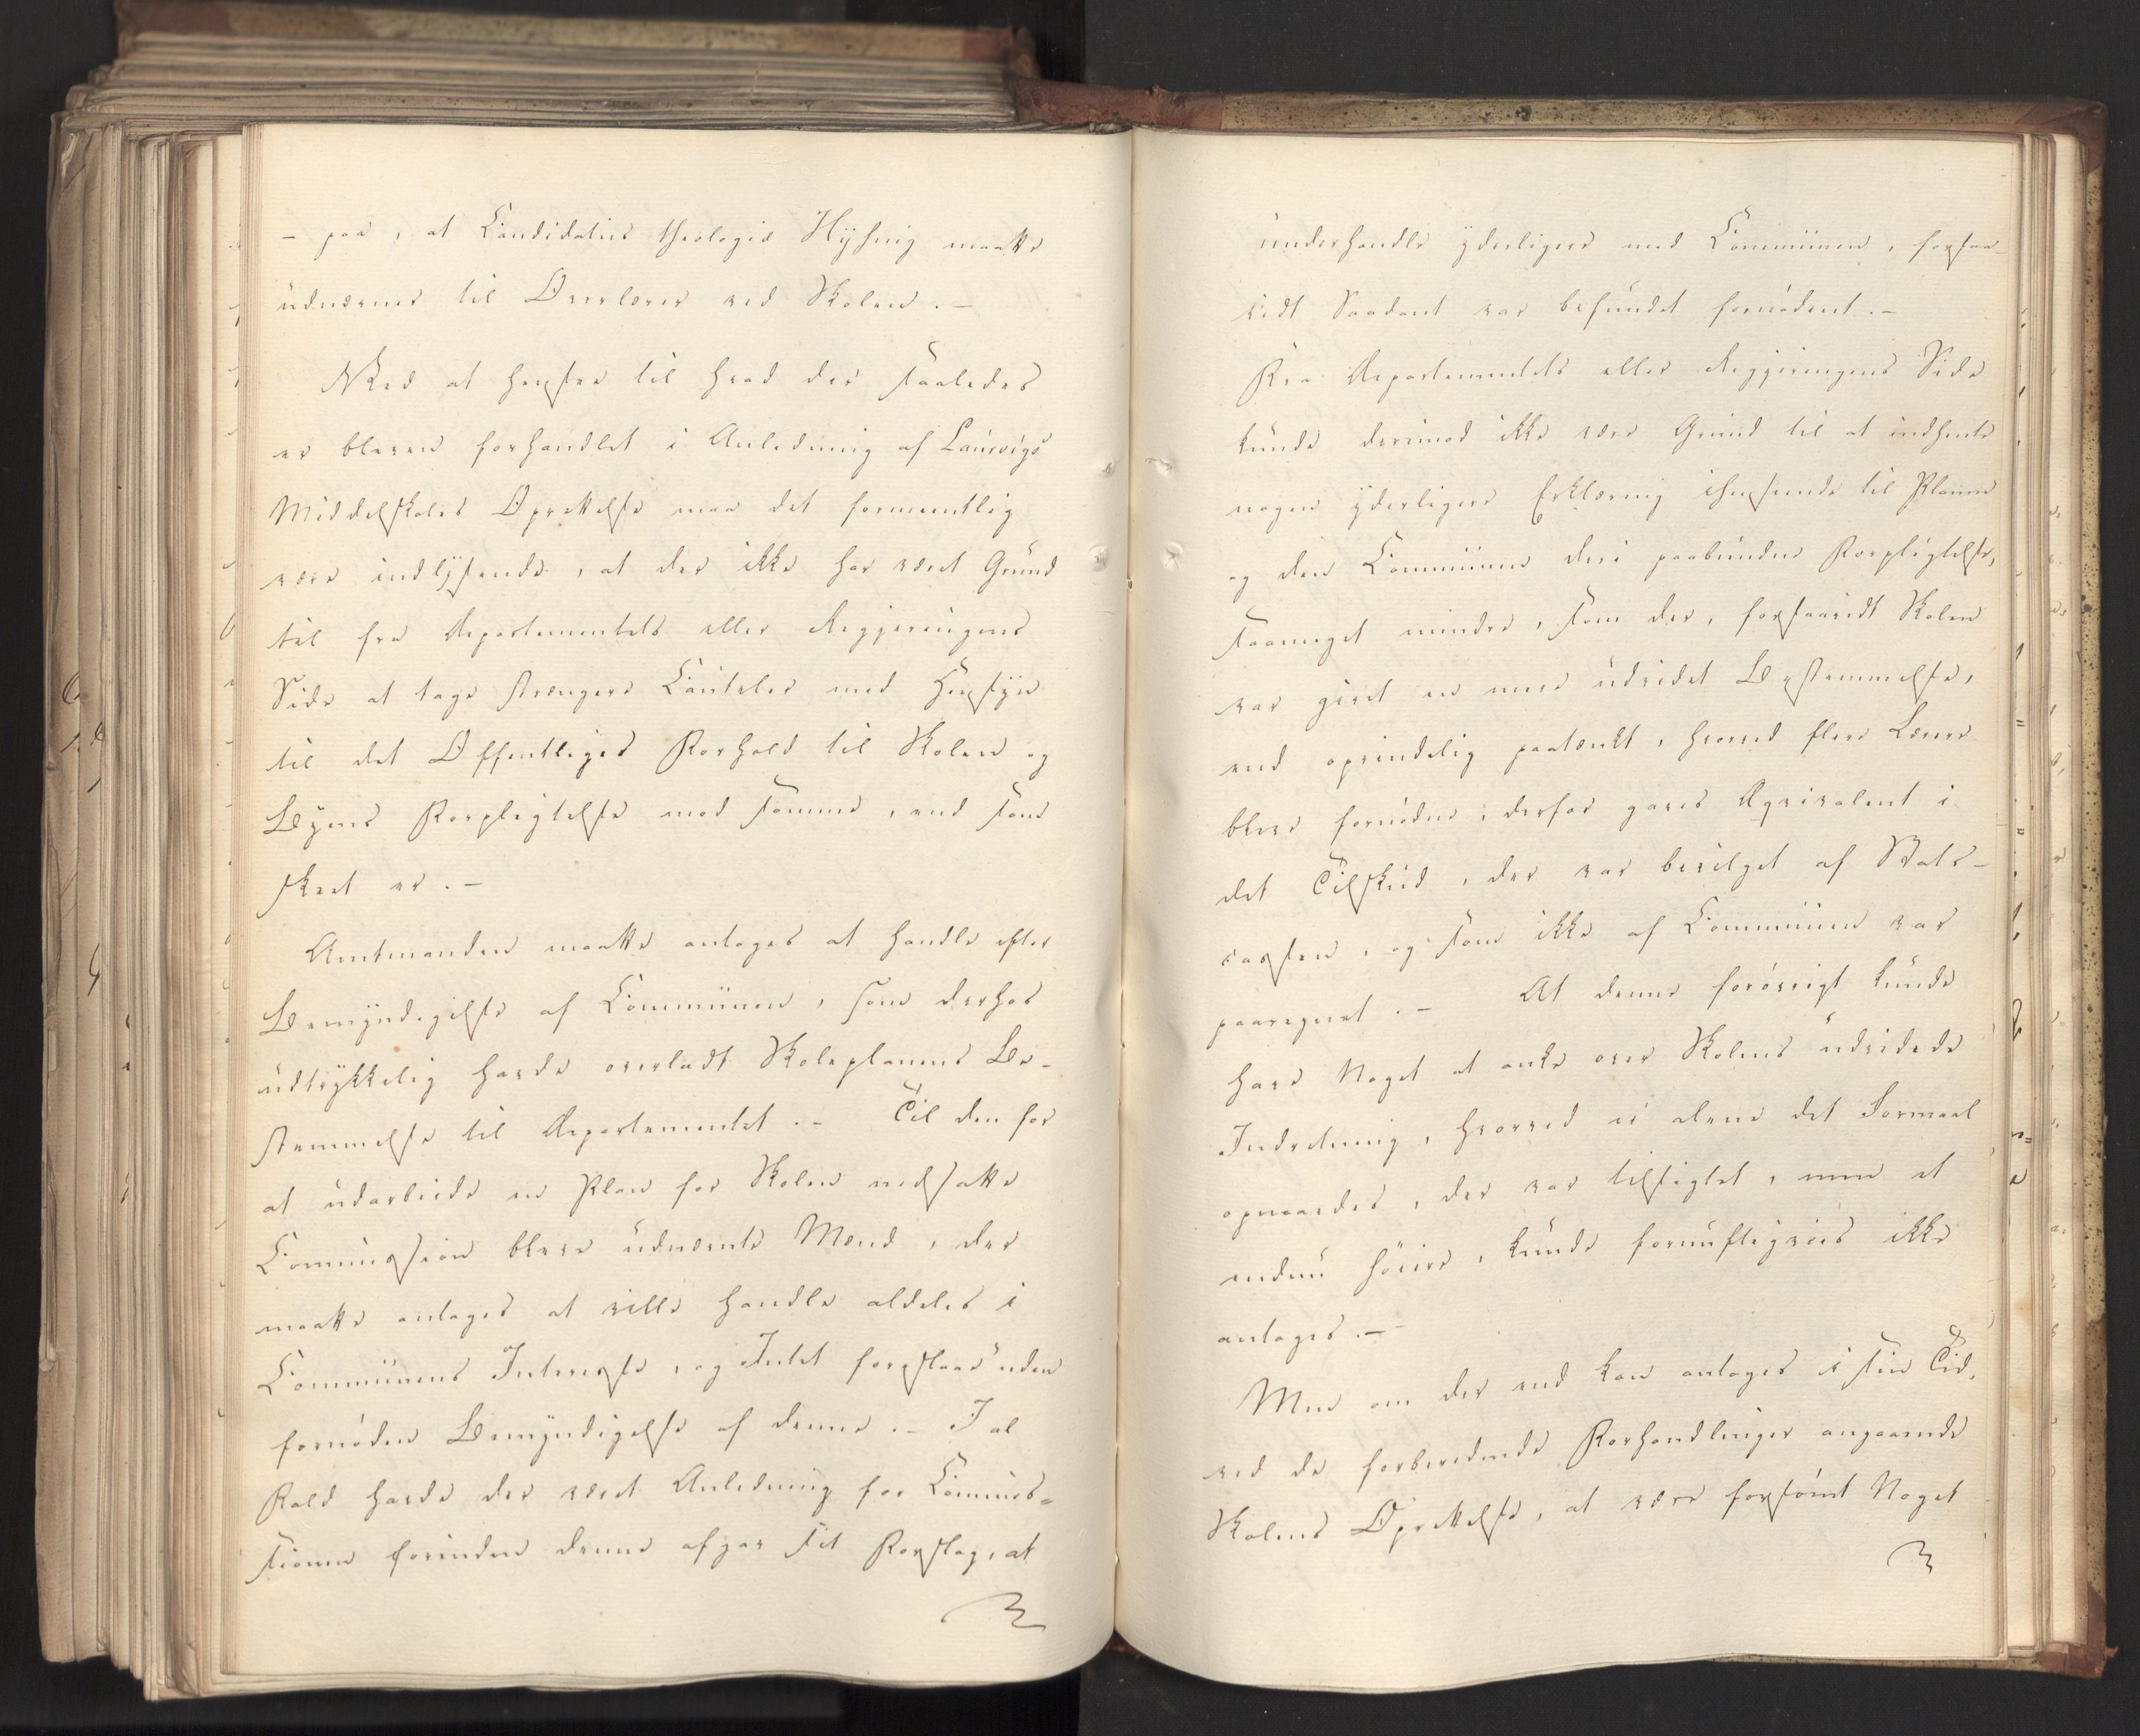 - paa, at Candidatus theologiæ Hysing maatte
udnævnes til Overlærer ved Skolen. -
Ved at hensee til hvad der saaledes
er bleven forhandlet i Anledning af Laurvigs
Middelskoles Oprettelse maa det formeentlig
være indlysende, at der ikke har været Grund
til fra Departementets eller Regjeringens
Side at tage strængere Cauteler med Hensyn
til det Offentliges Forhold til Skolen og
Byens Forpligtelse mod samme, end som
skeet er. -
Amtmanden maatte antages at handle efter
Bemyndigelse af Communen, som derhos
udtrykkelig havde overladt Skoleplanens Be-
stemmelse til Departementet. - Til den for
at udarbeide en Plan for Skolen nedsatte
Commission bleve udnævnte Mænd, der
maatte antages at ville handle aldeles i
Communens Interesse, og Intet foreslaae uden
fornöden Bemyndigelse af denne. - I al
Fald havde der været Anledning for Commis-
sionen forinden denne afgav sit Forslag, at
underhandle yderligere med Communen, forsaa-
vidt Saadant var befundet fornödent. -
Fra Departementets eller Regjeringens Side
kunde derimod ikke være Grund til at indhente
nogen yderligere Erklæring ihenseende til Planen
og den Communen deri paabundne Forpligtelse,
saameget mindre, som der, forsaavidt Skolen
var givet en mere udvidet Bestemmelse,
end oprindelig paatænkt, hvorved flere Lærere
bleve fornödne, derfor gaves Æqvivalent i
det Tilskud, der var bevilget af Stats-
cassen, og som ikke af Communen var
paaregnet. - At denne forövrigt kunde
have Noget at anke over Skolens udvidede
Indretning, hvorved ei alene det Formaal
opnaaedes, der var tilsigtet, men et
endnu höiere, kunde fornuftigviis ikke
antages. -
Men om der end kan antages i sin Tid,
ved de forberedende Forhandlinger angaaende
Skolens Oprettelse, at være forsömt Noget